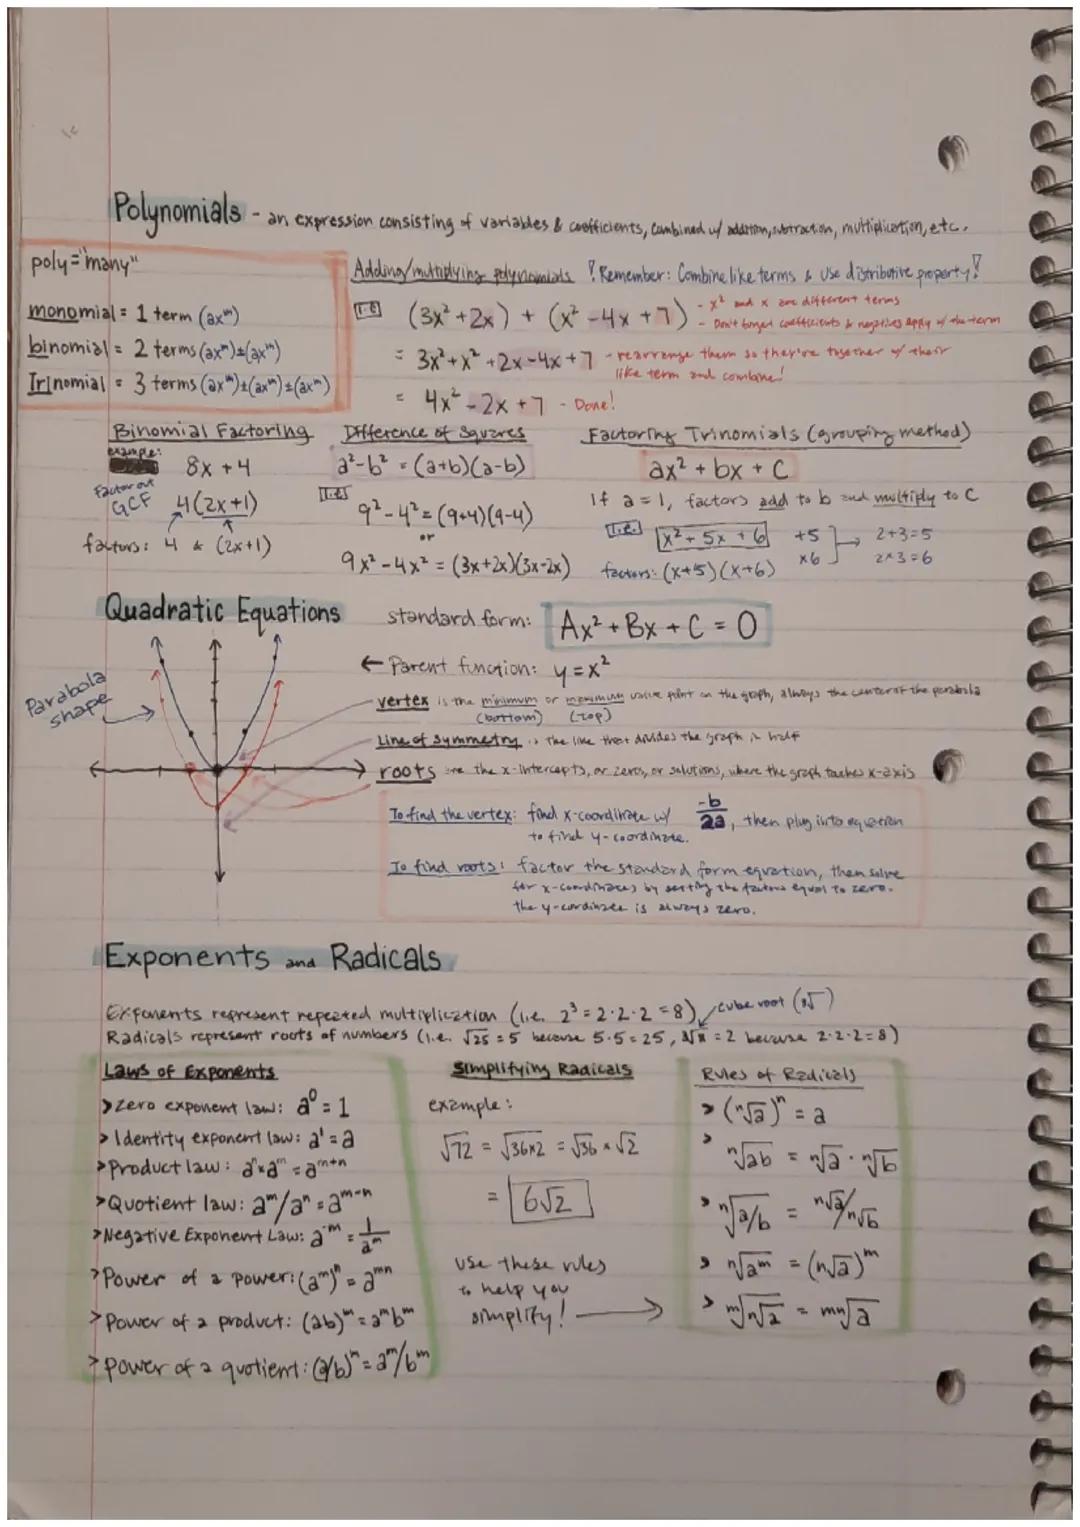 Polynomials - an expression consisting of variables & coefficients, combined w/ addition, subtraction, multiplication, etc.
poly="many"
monomial = 1 term (axᵐ)
binomial = 2 terms (axᵐ)±(axᵐ)
Trinomial = 3 terms (axᵐ)±(axᵐ)±(axᵐ)
Adding/multiplying polynomials ! Remember: Combine like terms & use distributive property!
i.e. (3x²+2x) + (x²-4x+7)
- x² and x are different terms
- Don't forget coefficients & negatives apply w/ the term
= 3x²+x²+2x-4x+7 - rearrange them so they're together w/ their
like term and combine!
= 4x²-2x+7 - Done!
Binomial Factoring
example:
8x+4
Factor out
GCF 4(2x+1)
factors: 4 & (2x+1)
Difference of Squares
a²-b² = (a+b)(a-b)
i.e.
9²-4² = (9+4)(9-4)
or
9x²-4x² = (3x+2x)(3x-2x)
Factoring Trinomials (grouping method)
ax²+bx+c
If a=1, factors add to b and multiply to C
i.e. x²+5x+6 +5 2+3=5
x6 2x3=6
factors: (x+5)(x+6)
Quadratic Equations
standard form: Ax²+Bx+C=0
Parabola
shape
← Parent function: y=x²
vertex is the minimum or maximum value point on the graph, always the center of the parabola
(bottom) (top)
Line of symmetry is the line that divides the graph in half
roots are the x-intercepts, or zeros, or solutions, where the graph touches x-axis
To find the vertex: find x-coordinate w/ -b/2a, then plug into equation
to find y-coordinate.
To find roots: factor the standard form equation, then solve
for x-coordinates by setting the factors equal to zero.
the y-coordinate is always zero.
Exponents and Radicals
Exponents represent repeated multiplication (i.e. 2³=2·2·2=8) cube root (³√)
Radicals represent roots of numbers (i.e. √25=5 because 5·5=25, ³√8=2 because 2·2·2=8)
Laws of Exponents
>Zero exponent law: a⁰=1
>Identity exponent law: a¹=a
>Product law: aⁿxaᵐ=aᵐ⁺ⁿ
>Quotient law: aᵐ/aⁿ=aᵐ⁻ⁿ
>Negative Exponent Law: a⁻ᵐ=1/aᵐ
>Power of a power: (aᵐ)ⁿ=aᵐⁿ
>Power of a product: (ab)ᵐ=aᵐbᵐ
>power of a quotient: (a/b)ᵐ=aᵐ/bᵐ
Simplifying Radicals
example:
√72 = √36x2 = √36 x √2
= 6√2
use these rules
to help you
simplify!
Rules of Radicals
> (ⁿ√a)ⁿ = a
> ⁿ√ab = ⁿ√a · ⁿ√b
> ⁿ√a/b = ⁿ√a/ⁿ√b
> ⁿ√aᵐ = (ⁿ√a)ᵐ
> ᵐ√ⁿ√a = ᵐⁿ√a